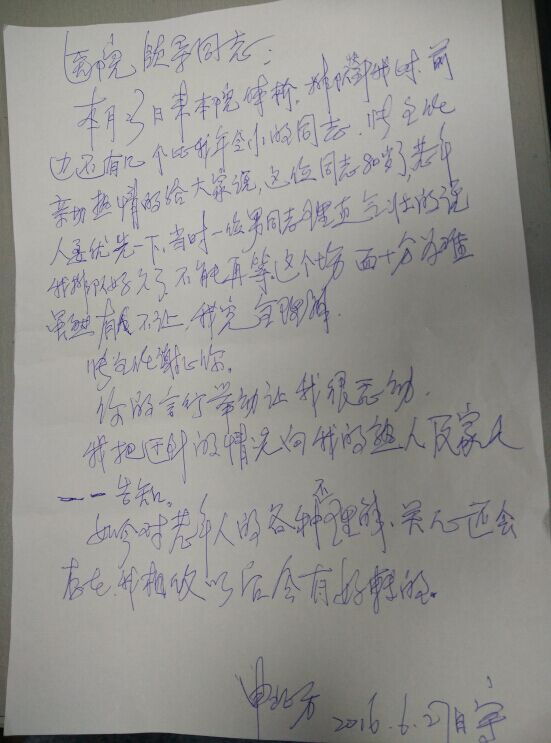 医院领导同志：
本月23日来本院体检，排队等我时，前
边还有几个比我年令小的同志，主任
亲切热情的给大家说，这位同志80岁了，老年
人要优先一下，当时一位男同志理直气壮的说
我排队好久了，不能再等，这个场面十分为难
虽然有人不让，我完全理解。
主任谢谢你。
你的言行举动让我很感动。
我把这种的情况向我的熟人及家人
一一告知。
如今对老年人的各种不理解、关心还会
存在，我相信以后会有好转的。
2016.6.27日